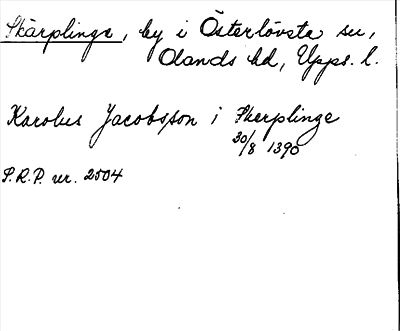 Skärplinge, by i Österlövsta sn,
Olands hd, Upps. l.
Karolus Jacobsson i Skerplinge
30/8 1390
S.R.P. nr. 2504